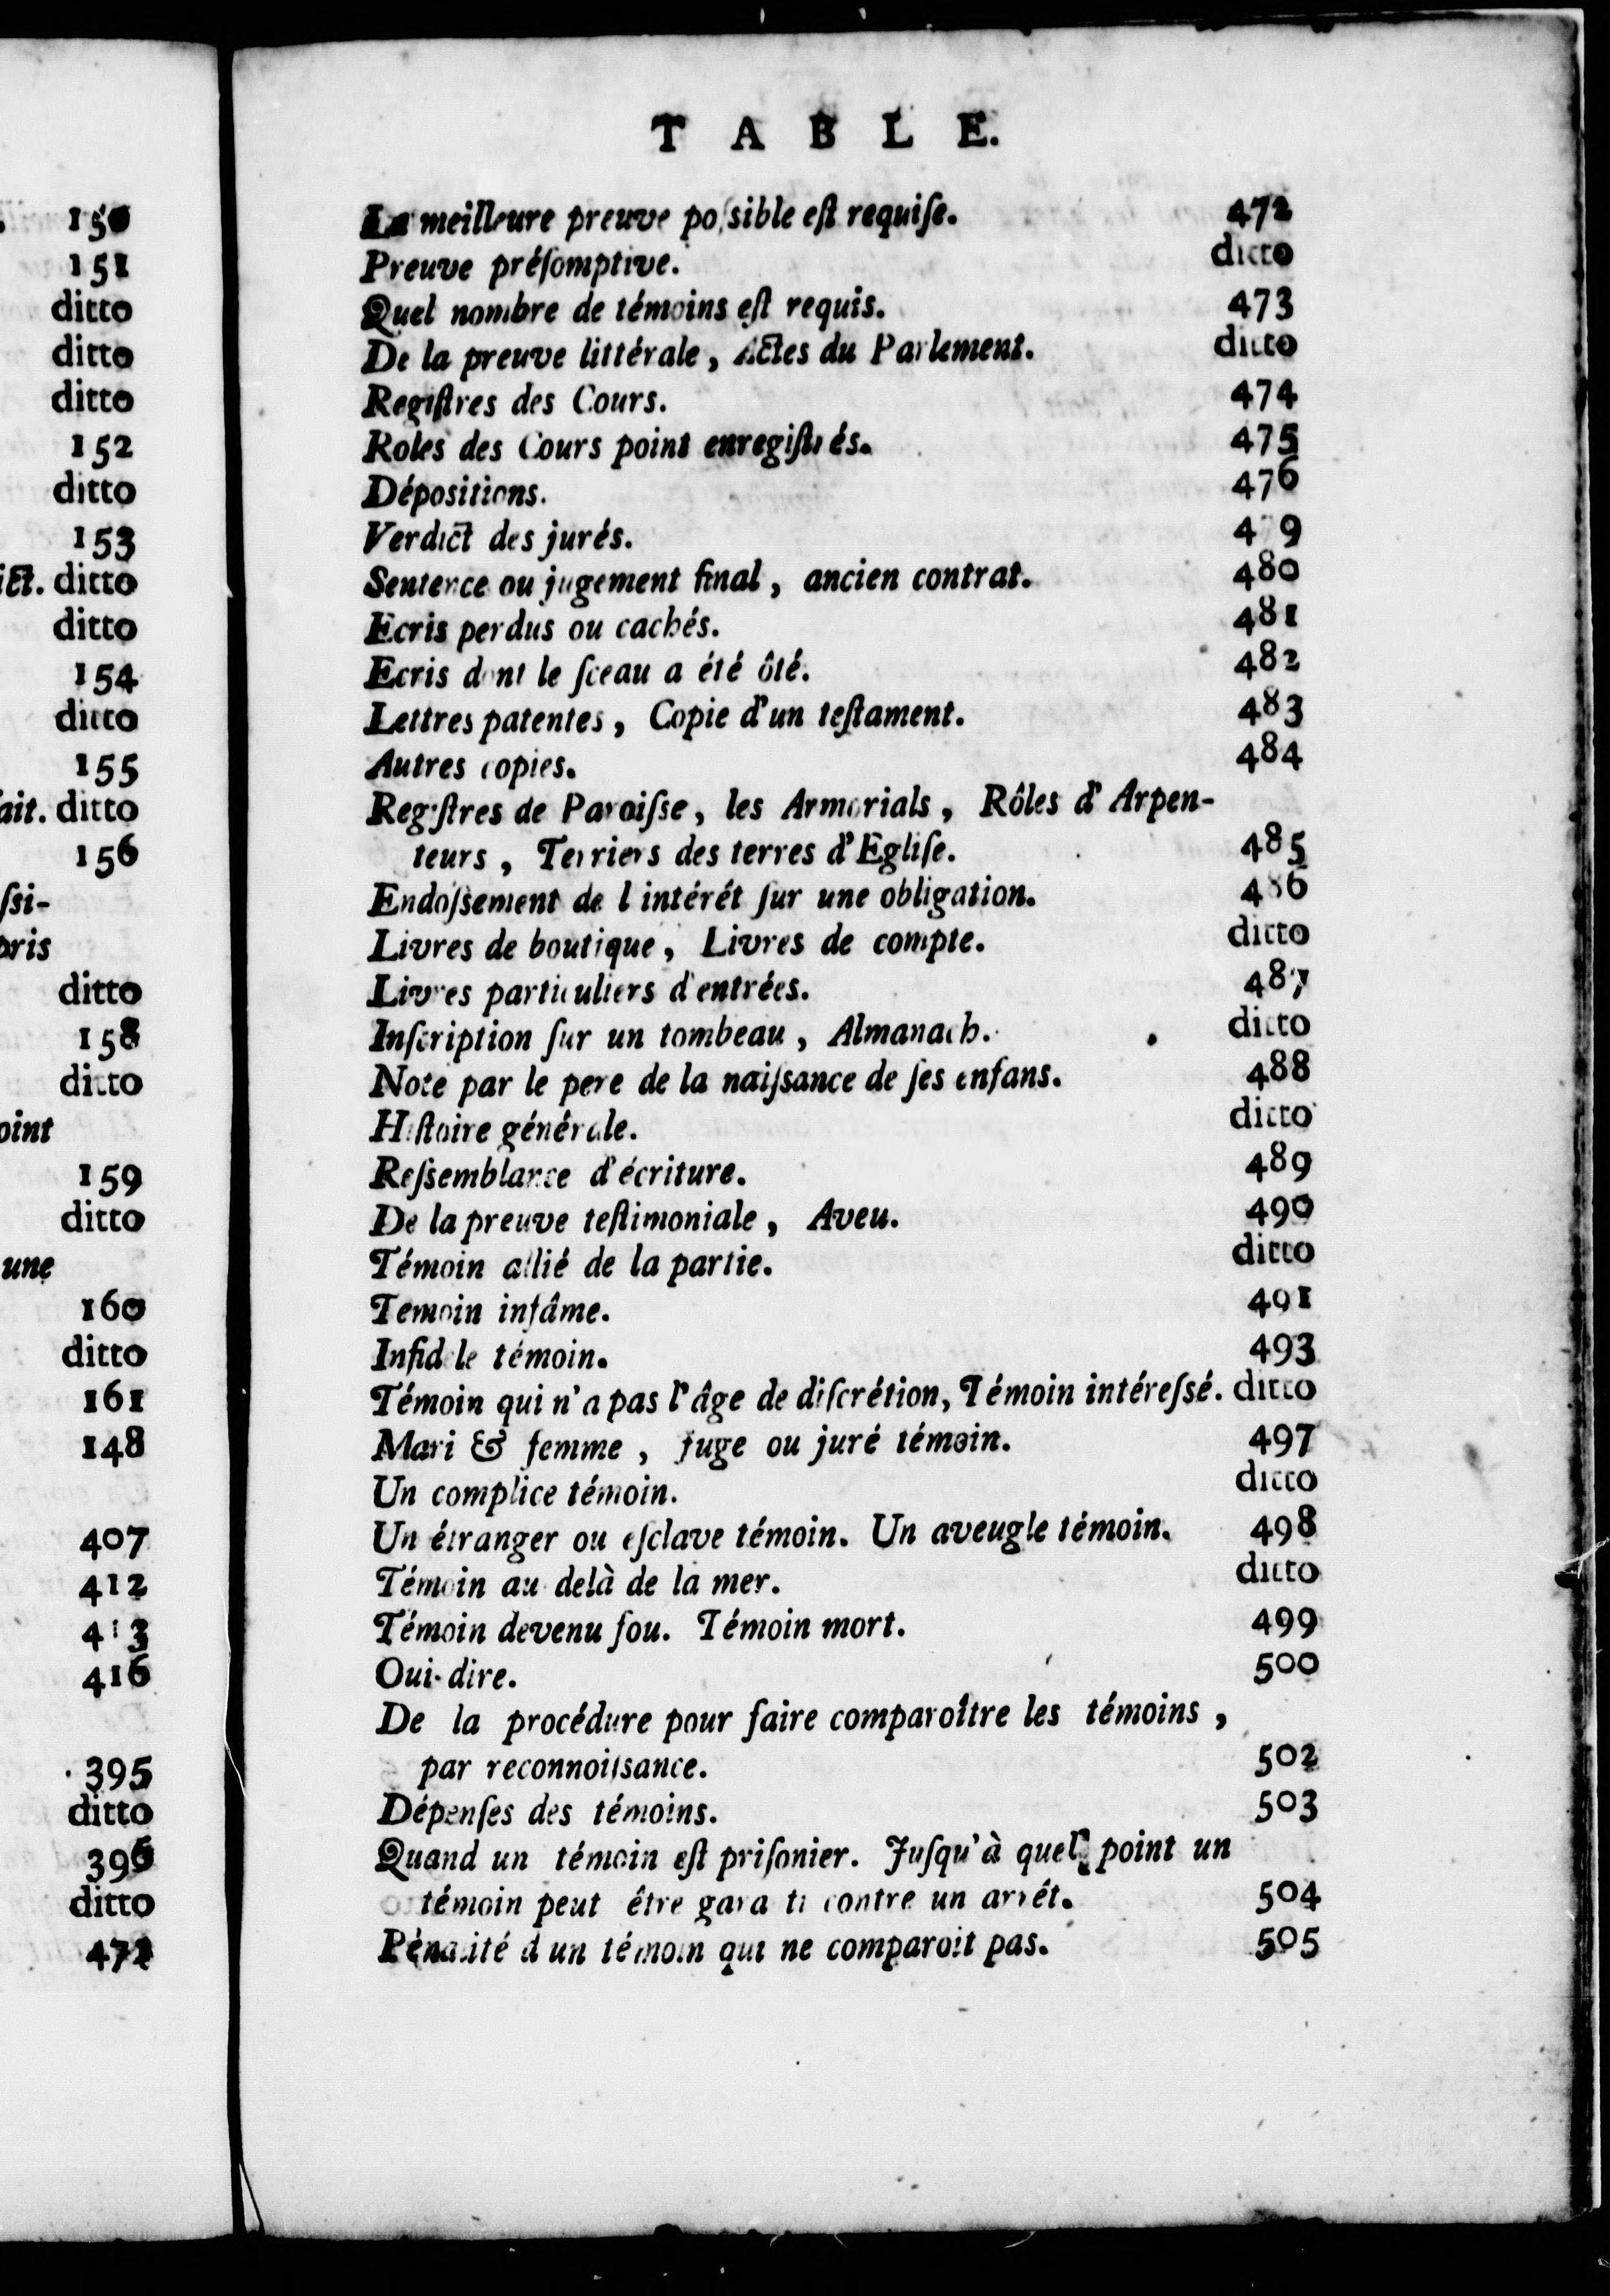 150
151
ditto
ditto
ditto
152
ditto
153
ict. ditto
ditto
154
ditto
155
ait. ditto
156
ſsi-
pris
ditto
158
ditto
oint
159
ditto
une
160
ditto
161
148
407
412
413
416
395
ditto
396
ditto
472
TABLE.
La meilleure preuve poſsible eſt requiſe. 472
Preuve préſomptive. ditto
Quel nombre de témoins eſt requis. 473
De la preuve littérale, Actes du Parlement. ditto
Regiſtres des Cours. 474
Roles des Cours point enregiſtrés. 475
Dépositions. 476
Verdict des jurés. 479
Sentence ou jugement final, ancien contrat. 480
Ecris perdus ou cachés. 481
Ecris dont le ſceau a été ôté. 482
Lettres patentes, Copie d'un teſtament. 483
Autres copies. 484
Regiſtres de Paroiſse, les Armorials, Rôles d'Arpen-
teurs, Terriers des terres d'Egliſe. 485
Endoſsement de l intérét ſur une obligation. 486
Livres de boutique, Livres de compte. ditto
Livres particuliers d'entrées. 487
Inſcription ſur un tombeau, Almanach. ditto
Note par le pere de la naiſsance de ſes enfans. 488
Hiſtoire générale. ditto
Reſsemblance d'écriture. 489
De la preuve teſtimoniale, Aveu. 490
Témoin allié de la partie. ditto
Temoin infâme. 491
Infidele témoin. 493
Témoin qui n'a pas l'âge de diſcrétion, Témoin intéreſsé. ditto
Mari & femme, Juge ou juré témoin. 497
Un complice témoin. ditto
Un étranger ou eſclave témoin. Un aveugle témoin. 498
Témoin au delà de la mer. ditto
Témoin devenu fou. Témoin mort. 499
Oui-dire. 500
De la procédure pour faire comparoître les témoins,
par reconnoiſsance. 502
Dépenſes des témoins. 503
Quand un témoin eſt priſonier. Juſqu'à quel point un
témoin peut être garanti contre un arrét. 504
Pénalité d un témoin qui ne comparoit pas. 505